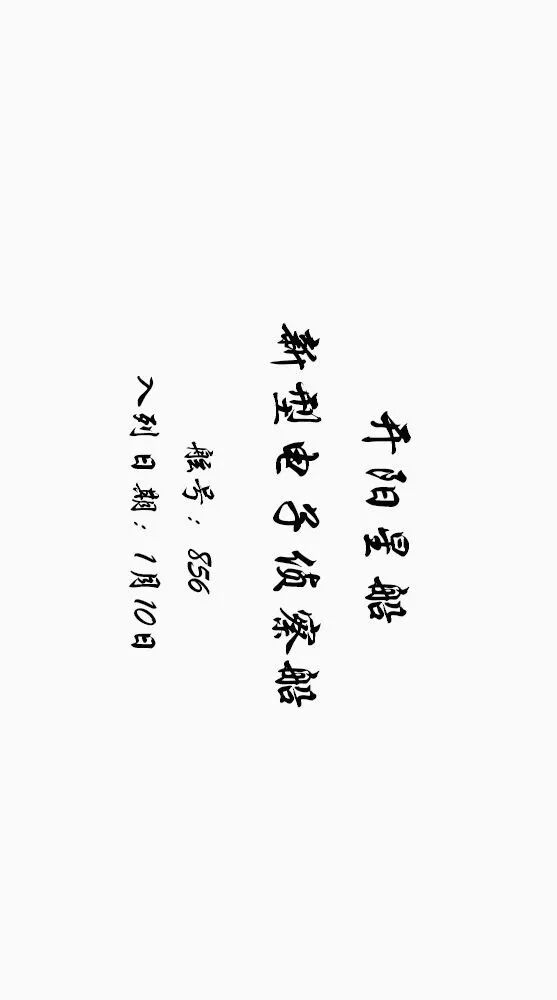 开阳星船
新型电子侦察船
舷号：856
入列日期：1月10日